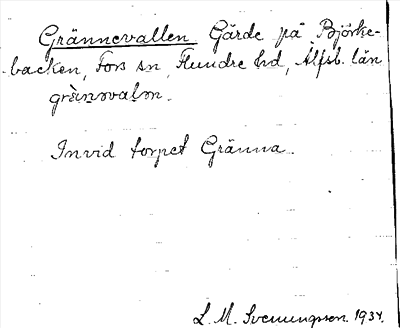 Grännevallen Gärde på Björke-
backen, Fors sn, Flundre hd, Älfsb. län
grännvaln.
Invid torpet Gränna.
L. M. Svenungsson. 1934.